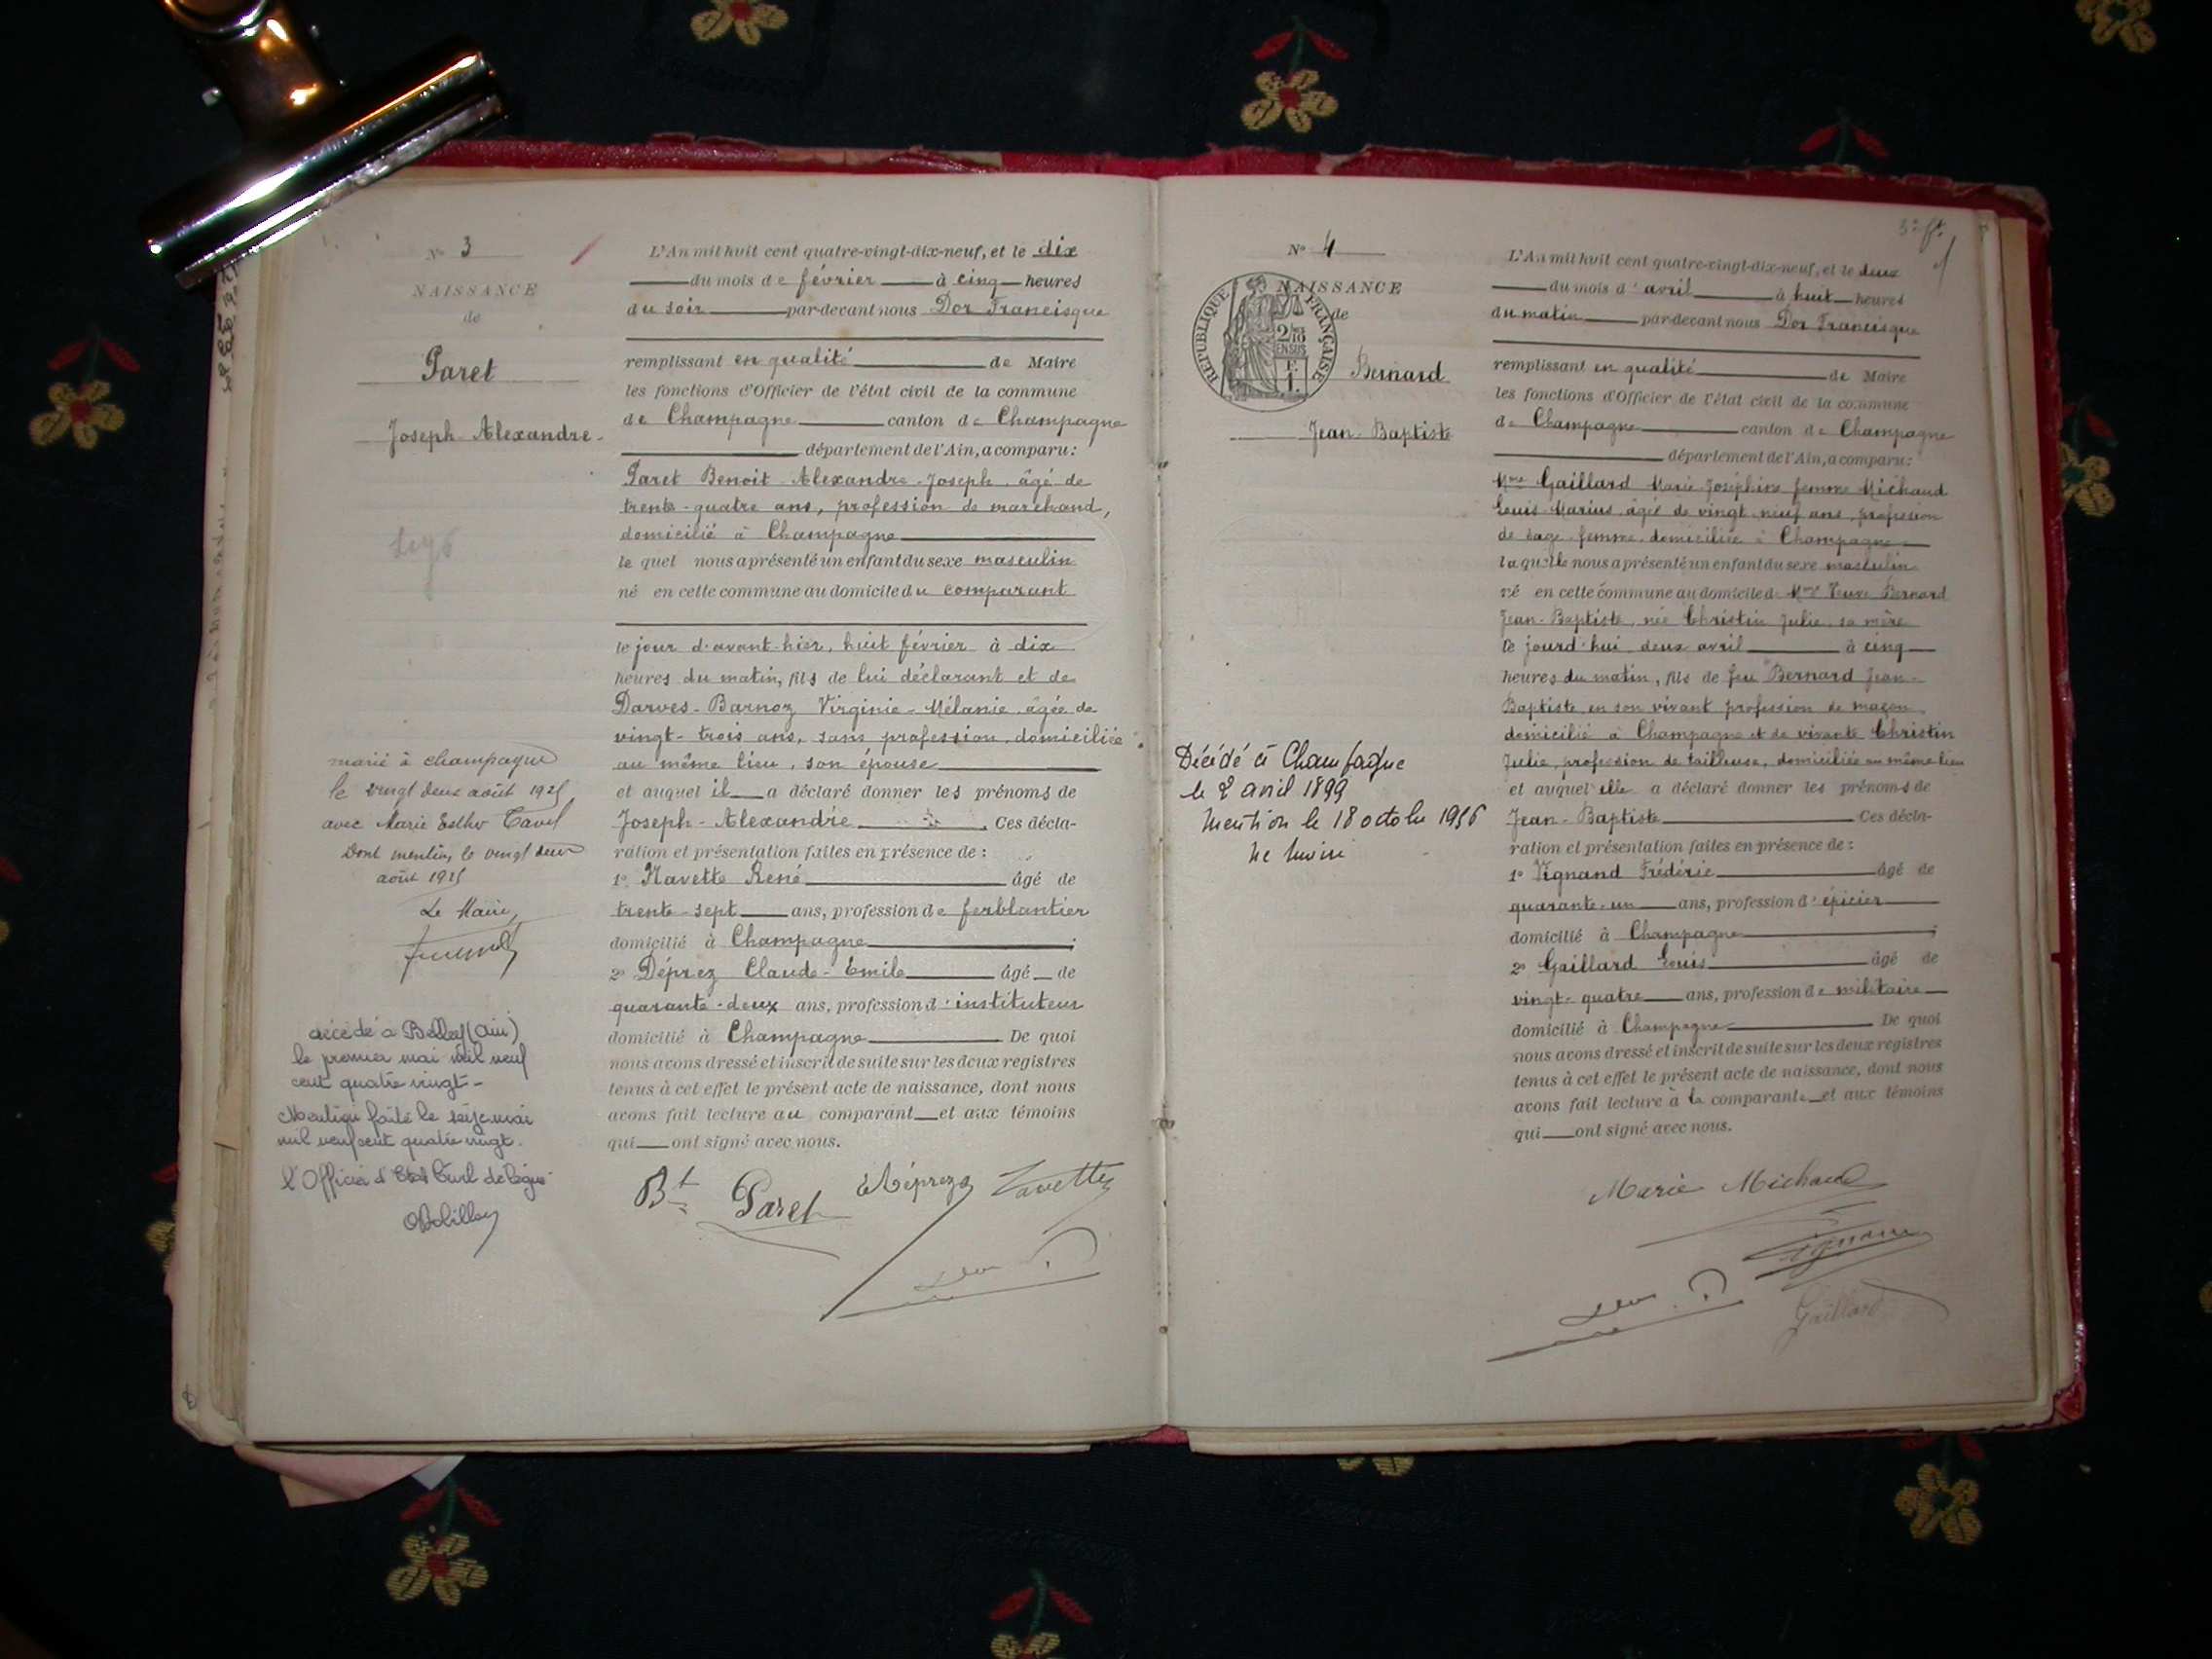 N° 3
NAISSANCE
de
Paret
Joseph-Alexandre.
marié à champagne
le vingt deux août 1925
avec Marie Esther Tavel
Dont mention, le vingt deux
août 1925
Le Maire,
décédé à Belley (Ain)
le premier mai mil neuf
cent quatre vingt-
Mention faite le seize mai
mil neuf cent quatre vingt.
l'Officier d'Etat Civil délégué
L'An mil huit cent quatre-vingt-dix-neuf, et le dix
du mois de février à cinq heures
du soir par-devant nous Dor Francisque
remplissant en qualité de Maire
les fonctions d'Officier de l'état civil de la commune
de Champagne canton de Champagne
département de l'Ain, a comparu:
Paret Benoit-Alexandre-Joseph, âgé de
trente-quatre ans, profession de marchand,
domicilié à Champagne
le quel nous a présenté un enfant du sexe masculin
né en cette commune au domicile du comparant
le jour d'avant-hier, huit février à dix
heures du matin, fils de lui déclarant et de
Darves-Barnoz Virginie-Mélanie, âgée de
vingt-trois ans, sans profession, domiciliée
au même lieu, son épouse
et auquel il a déclaré donner les prénoms de
Joseph-Alexandre. Ces décla-
ration et présentation faites en présence de:
1° Navette René âgé de
trente-sept ans, profession de ferblantier
domicilié à Champagne;
2° Déprez Claude-Emile âgé de
quarante-deux ans, profession d'instituteur
domicilié à Champagne De quoi
nous avons dressé et inscrit de suite sur les deux registres
tenus à cet effet le présent acte de naissance, dont nous
avons fait lecture au comparant et aux témoins
qui ont signé avec nous.
Bt Paret Déprez Navette
N° 4
NAISSANCE
de
RÉPUBLIQUE FRANÇAISE
2/10
EN SUS
Bernard
Jean-Baptiste
Décédé à Champagne
le 2 avril 1899
Mention le 18 octobre 1956
L'An mil huit cent quatre-vingt-dix-neuf, et le deux
du mois d'avril à huit heures
du matin par-devant nous Dor Francisque
remplissant en qualité de Maire
les fonctions d'Officier de l'état civil de la commune
de Champagne canton de Champagne
département de l'Ain, a comparu:
Mme Gaillard Marie-Joséphine femme Michaud
Louis-Marius, âgée de vingt-neuf ans, profession
de sage-femme, domiciliée à Champagne
laquelle nous a présenté un enfant du sexe masculin
né en cette commune au domicile de Mme Veuve Bernard
Jean-Baptiste, née Christin Julie, sa mère
le jourd'hui deux avril à cinq
heures du matin, fils de feu Bernard Jean-
Baptiste en son vivant profession de maçon
domicilié à Champagne et de vivante Christin
Julie, profession de tailleuse, domiciliée au même lieu
et auquel elle a déclaré donner les prénoms de
Jean-Baptiste Ces décla-
ration et présentation faites en présence de:
1° Vignand Frédéric âgé de
quarante-un ans, profession d'épicier
domicilié à Champagne;
2° Gaillard Louis âgé de
vingt-quatre ans, profession de militaire
domicilié à Champagne De quoi
nous avons dressé et inscrit de suite sur les deux registres
tenus à cet effet le présent acte de naissance, dont nous
avons fait lecture à la comparante et aux témoins
qui ont signé avec nous.
Marie Michaud
Vignand
Gaillard